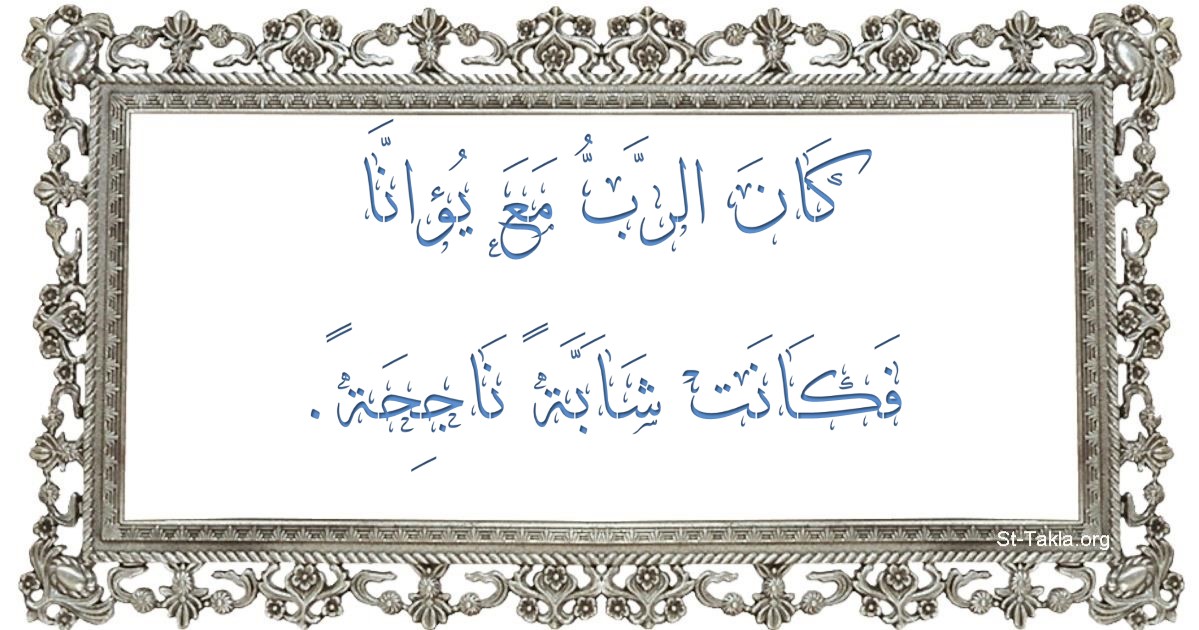 كَانَ الرَّبُّ مَعَ يُؤانَّا
فَكَانَت شَابَّةً نَاجِحَةً.
St-Takla.org